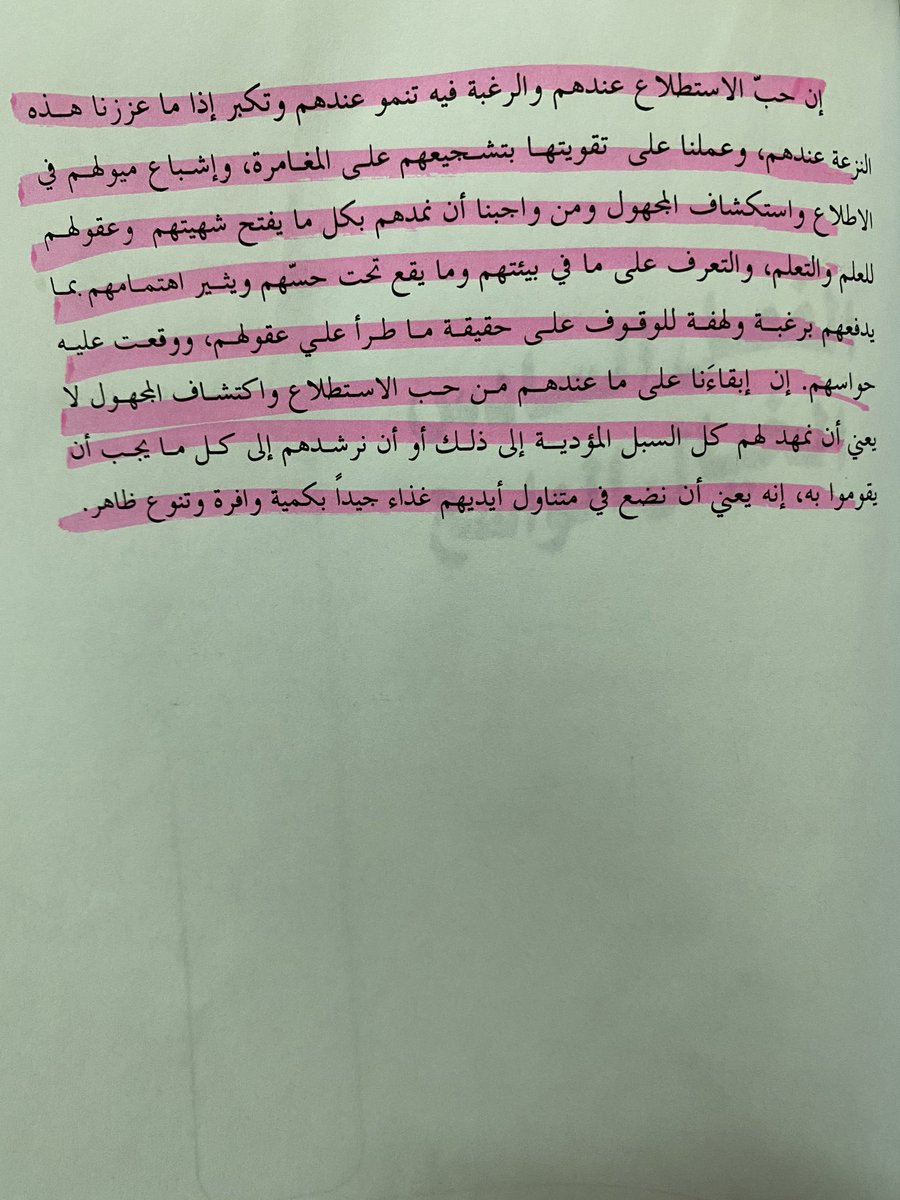 إن حبّ الاستطلاع عندهم والرغبة فيه تنمو عندهم وتكبر إذا ما عززنا هذه
النزعة عندهم، وعملنا على تقويتها بتشجيعهم على المغامرة، وإشباع ميولهم في
الاطلاع واستكشاف المجهول ومن واجبنا أن نمدهم بكل ما يفتح شهيتهم وعقولهم
للعلم والتعلم، والتعرف على ما في بيئتهم وما يقع تحت حسّهم ويثير اهتمامهم بما
يدفعهم برغبة ولهفة للوقوف على حقيقة ما طرأ علي عقولهم، ووقعت عليه
حواسهم. إن إبقاءَنا على ما عندهم من حب الاستطلاع واكتشاف المجهول لا
يعني أن نمهد لهم كل السبل المؤدية إلى ذلك أو أن نرشدهم إلى كل ما يجب أن
يقوموا به، إنه يعني أن نضع في متناول أيديهم غذاء جيداً بكمية وافرة وتنوع ظاهر.